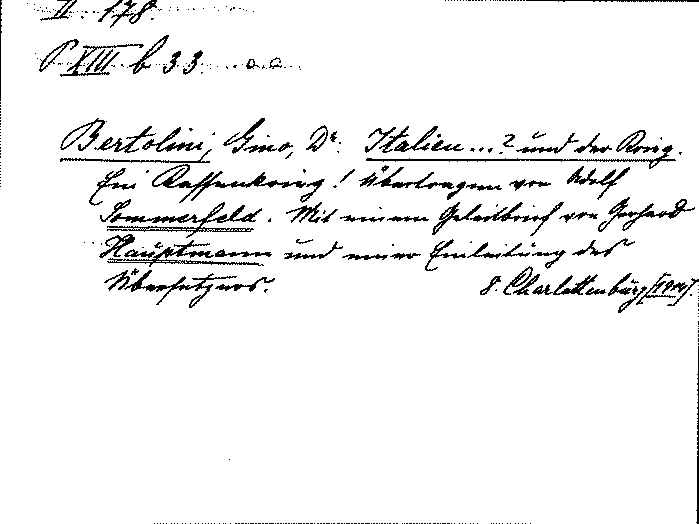 II. 178.
P XIII b 33. aa.
Bertolini, Gino, Dr: Italien...? und der Krieg.
Ein Rassenkrieg! Übertragen von Adolf
Sommerfeld. Mit einem Geleitbrief von Gerhard
Hauptmann und einer Einleitung des
Übersetzers.
8. Charlottenburg